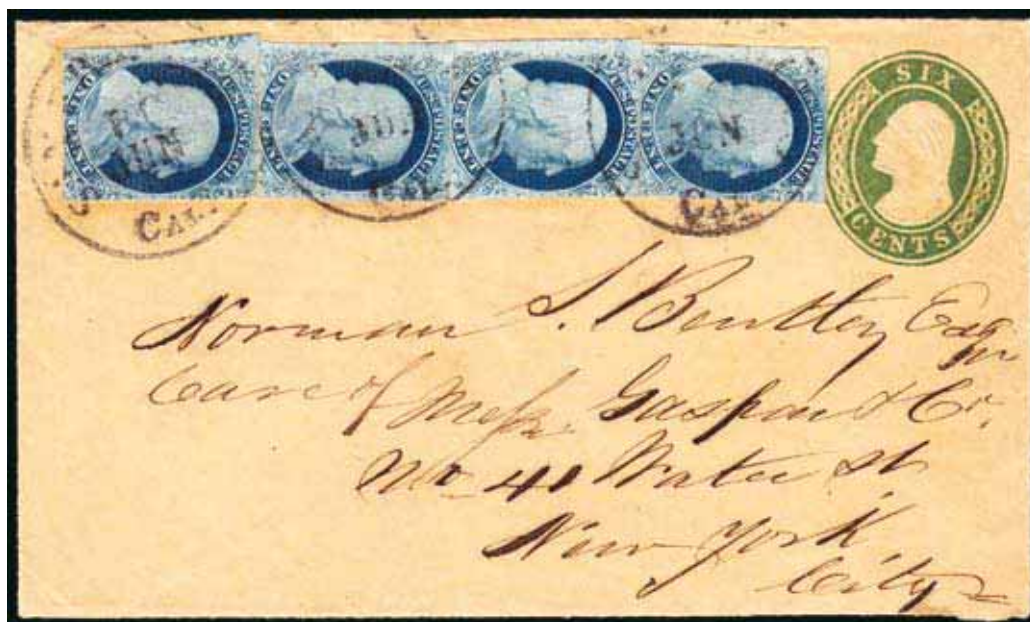 U.S. POSTAGE
ONE CENT
U.S. POSTAGE
ONE CENT
U.S. POSTAGE
ONE CENT
U.S. POSTAGE
ONE CENT
SIX
CENTS
JUN
CAL.
CAL.
JUN
CAL.
Norman S. Bentley Esqr
Care of Messr Gaspar & Co.
No 40 Water St.
New York
City